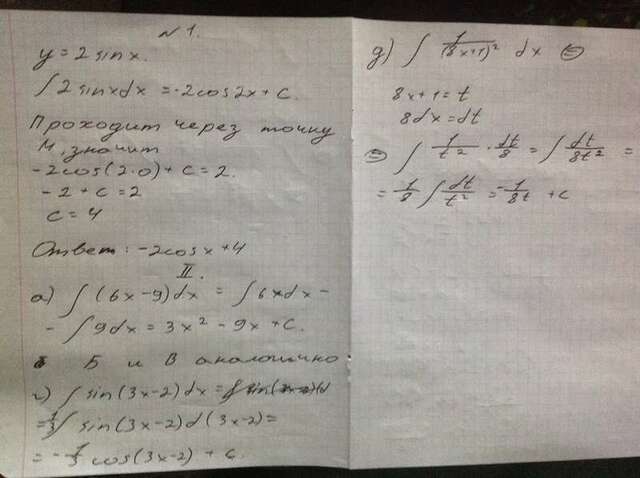 N 1.
y = 2 sin x.
∫ 2 sin x dx = -2 cos 2x + C.
Проходит через точку
М, значит
-2 cos(2·0) + C = 2.
-2 + C = 2
C = 4
Ответ: -2 cos x + 4
II.
а) ∫ (6x - 9) dx = ∫ 6x dx -
- ∫ 9 dx = 3x² - 9x + C.
Б и В аналогично
г) ∫ sin(3x-2) dx =
= 1/3 ∫ sin(3x-2) d(3x-2) =
= -1/3 cos(3x-2) + C.
д) ∫ 1/(8x+1)² dx =
8x+1 = t
8dx = dt
= ∫ 1/t² · dt/8 = ∫ dt/8t² =
= 1/8 ∫ dt/t² = -1/8t + C